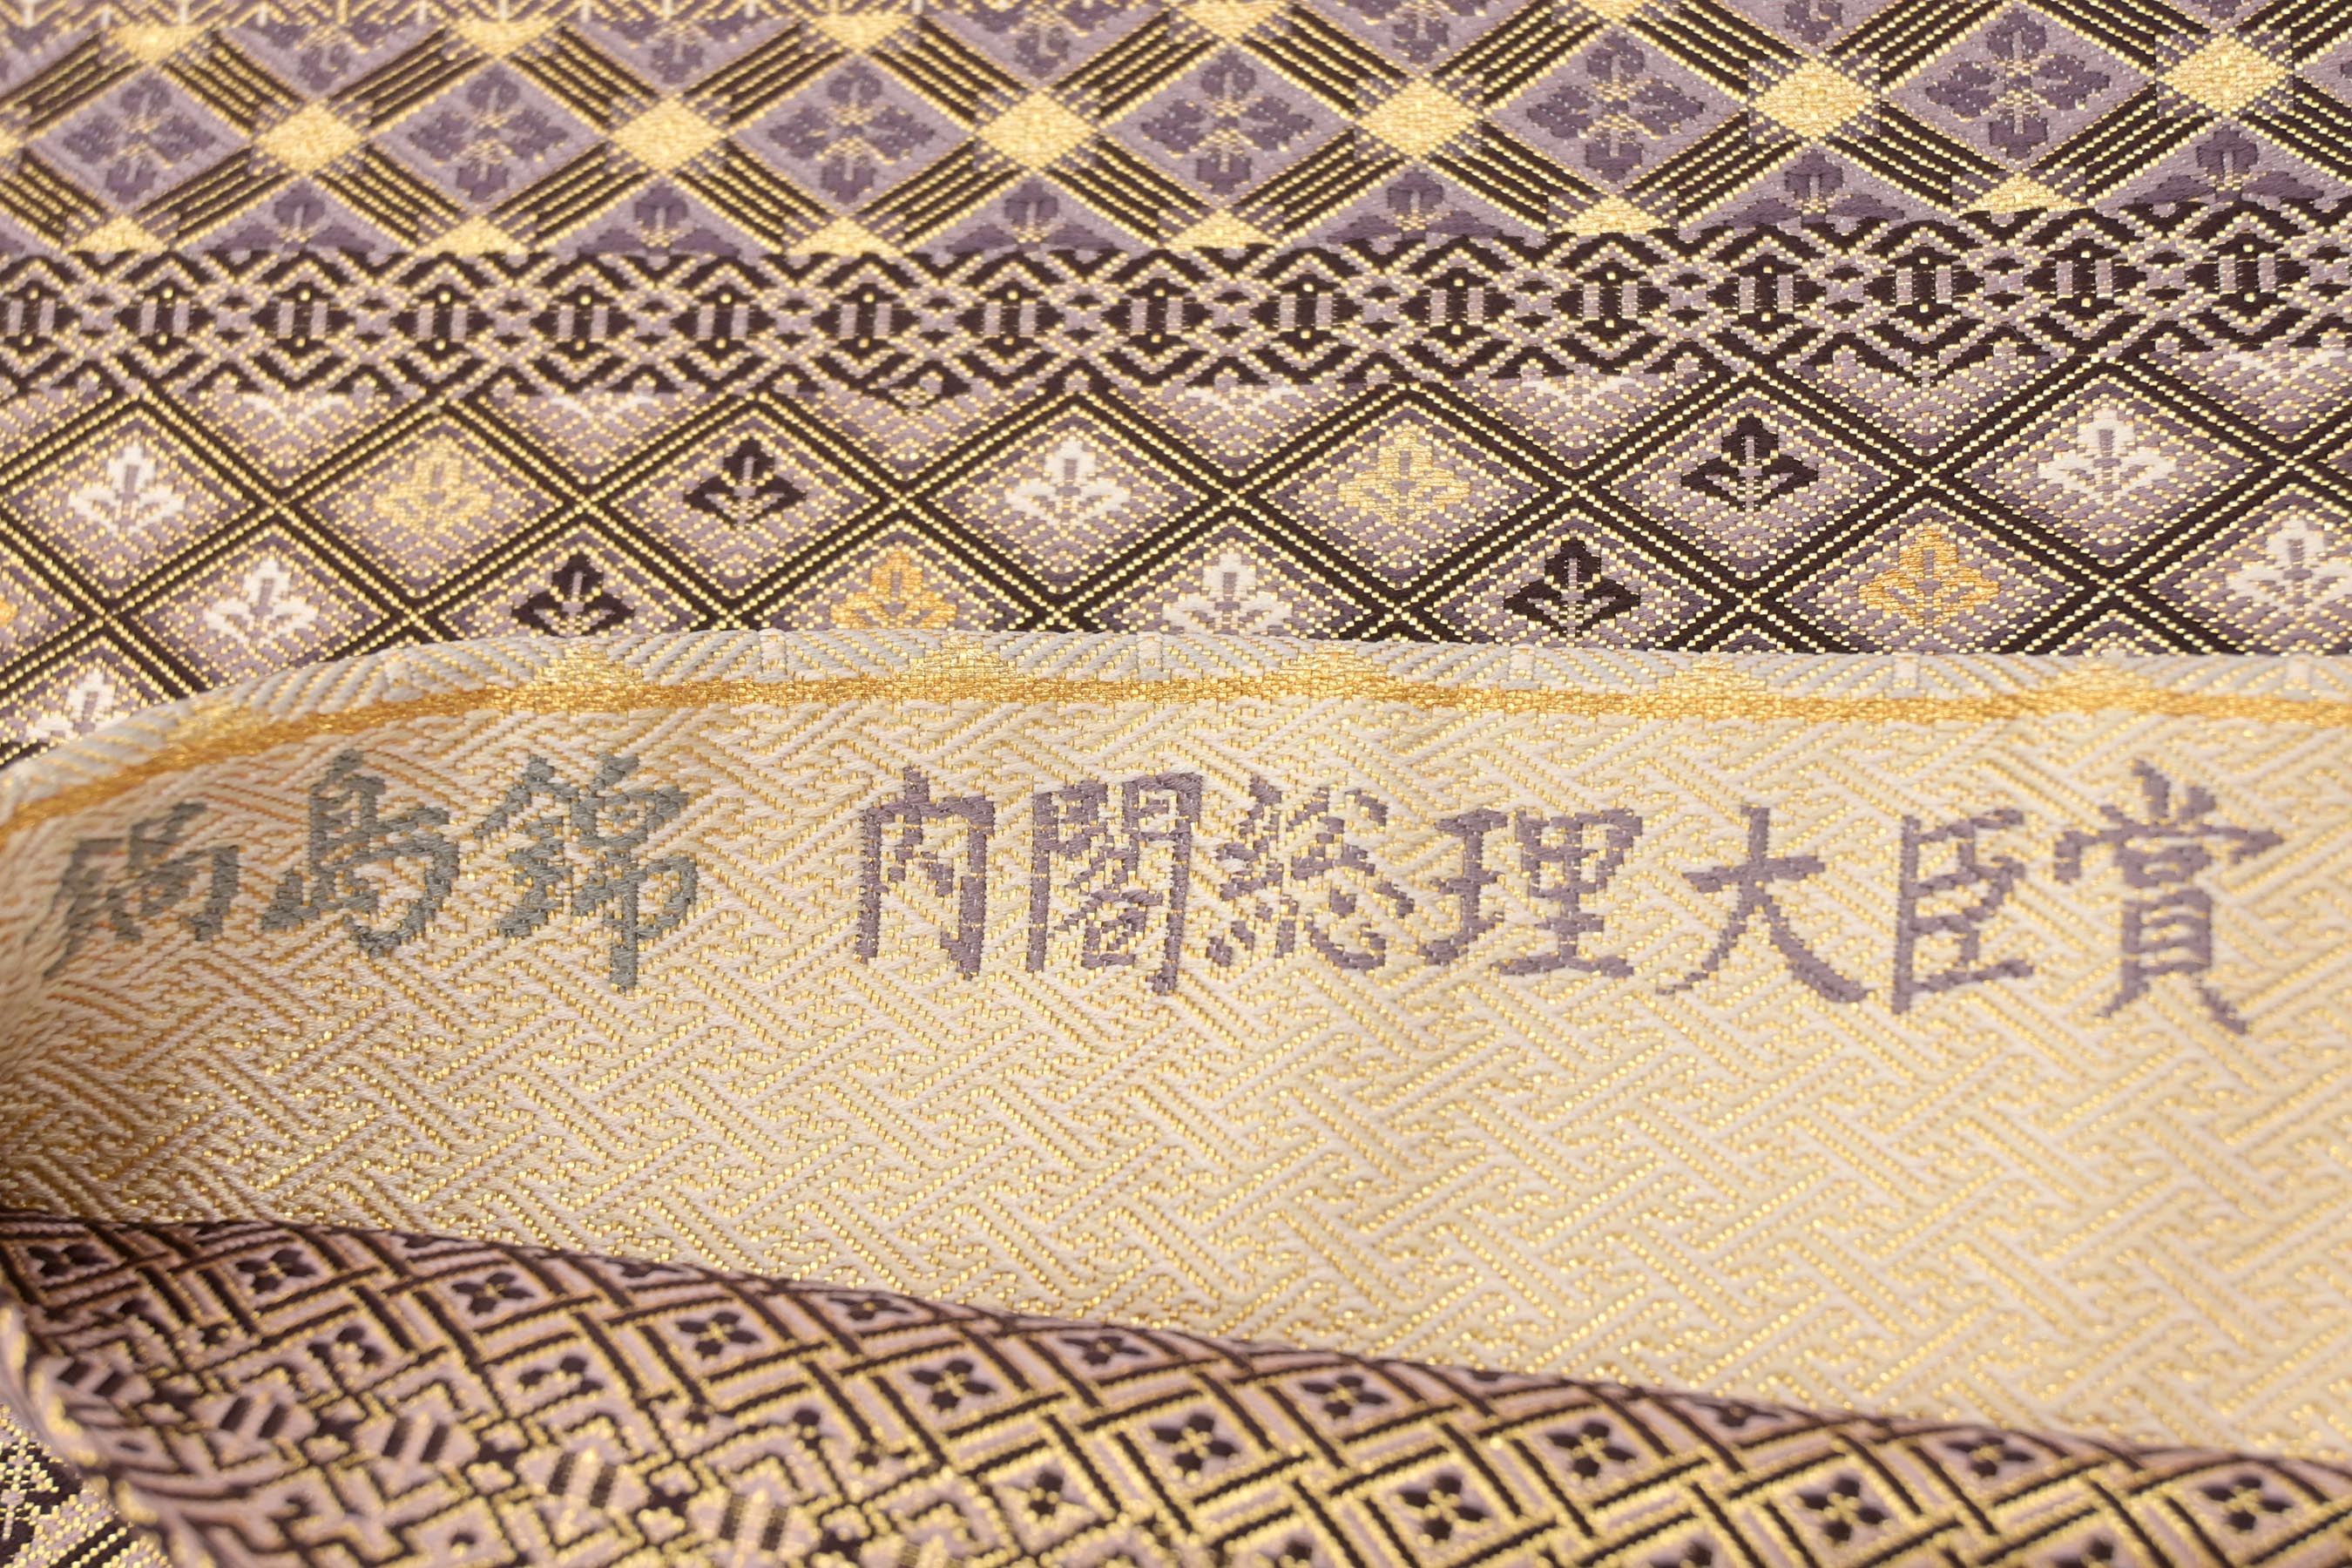 島錦 内閣総理大臣賞